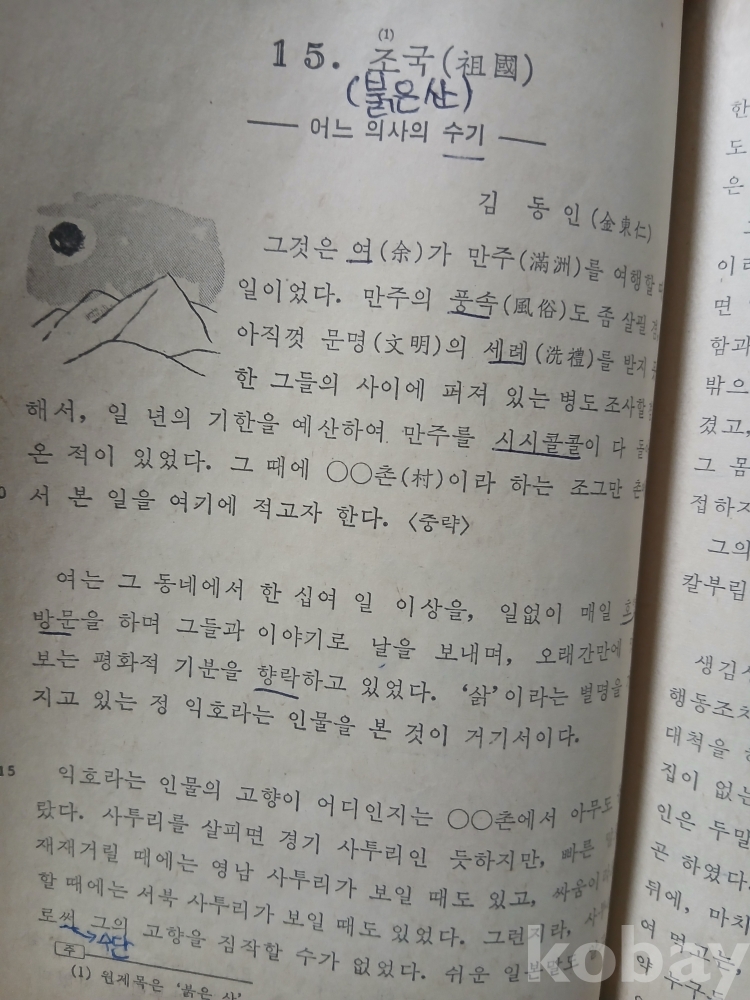 (1)
15. 조국(祖國)
(붉은산)
어느 의사의 수기
김 동 인 (金東仁)
그것은 여(余)가 만주(滿洲)를 여행할
일이었다. 만주의 풍속(風俗)도 좀 살필
아직껏 문명(文明)의 세례(洗禮)를 받지
한 그들의 사이에 퍼져 있는 병도 조사할
해서, 일 년의 기한을 예산하여 만주를 시시콜콜이 다
온 적이 있었다. 그 때에 ○○촌(村)이라 하는 조그만
0 서 본 일을 여기에 적고자 한다. 〈중략〉
여는 그 동네에서 한 십여 일 이상을, 일없이 매일
방문을 하며 그들과 이야기로 날을 보내며, 오래간만에
보는 평화적 기분을 향락하고 있었다. ‘삵’이라는 별명을
지고 있는 정 익호라는 인물을 본 것이 거기서이다.
15 익호라는 인물의 고향이 어디인지는 ○○촌에서 아무도
랐다. 사투리를 살피면 경기 사투리인 듯하지만, 빠른
재재거릴 때에는 영남 사투리가 보일 때도 있고, 싸움이라
할 때에는 서북 사투리가 보일 때도 있었다. 그런지라,
로써 그의 고향을 짐작할 수가 없었다. 쉬운 일본말도
수단
주
(1) 원제목은 ‘붉은 산’
한
도
은
이라
면
함과
밖으
겼고,
그 몸
접하지
그의
칼부림
생김
행동조차
대척을
집이 없는
인은 두밀
곤 하였다.
뒤에, 마치
여 먹고는,
약 누구
kobay